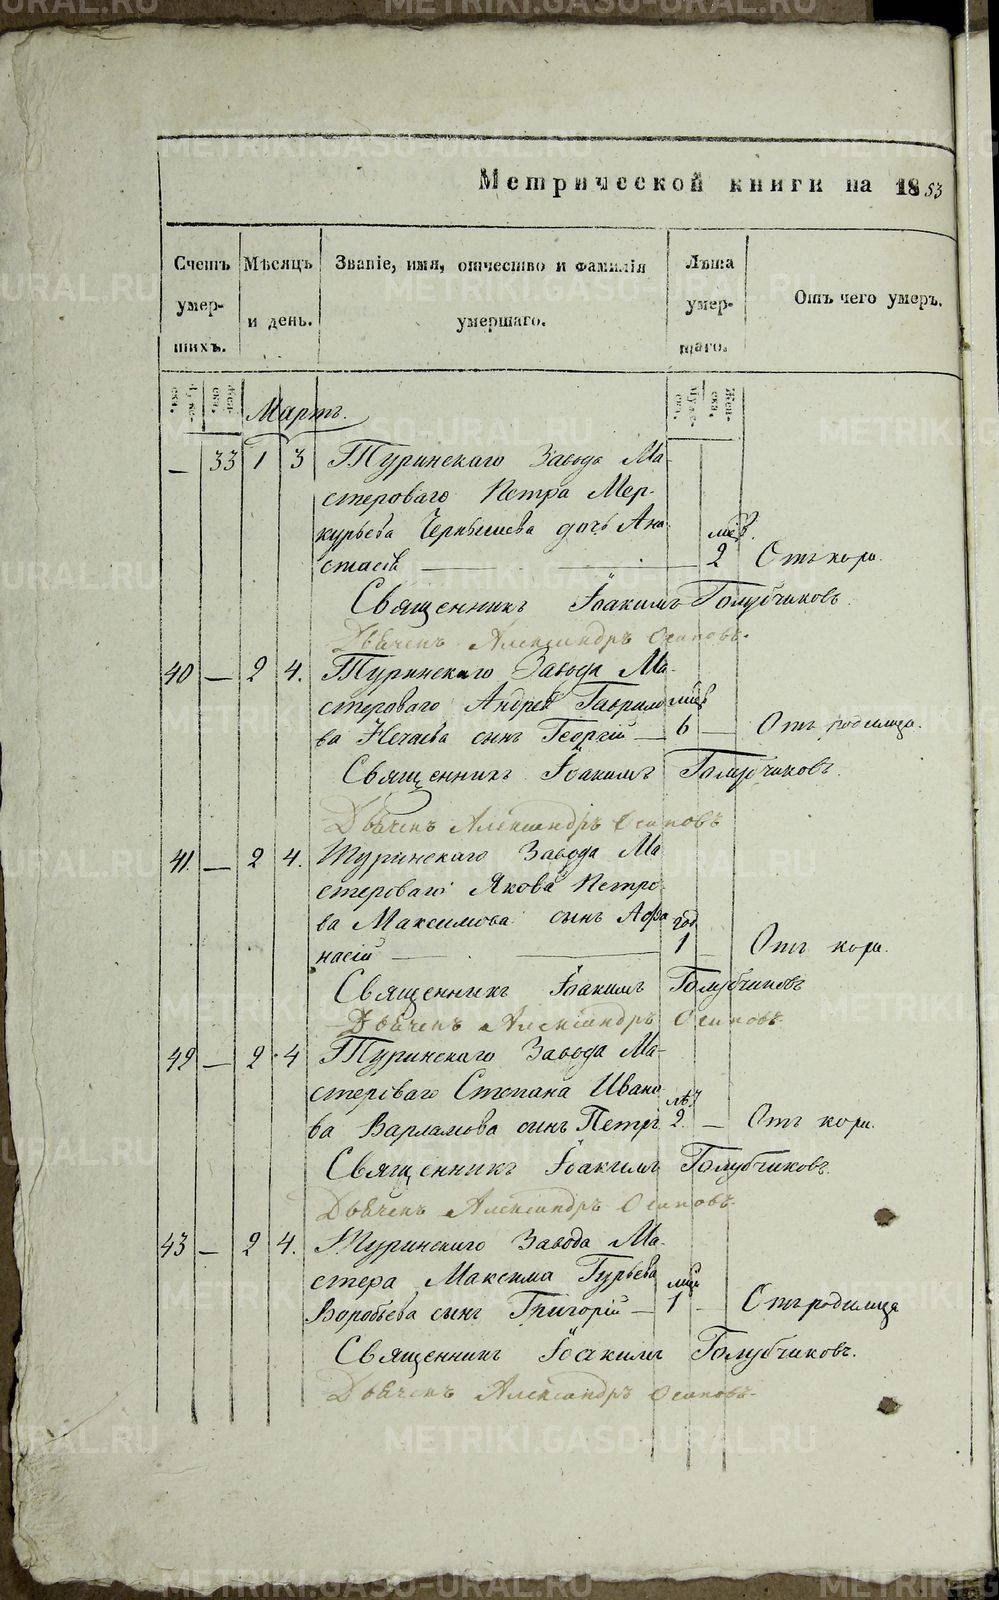 METRIKI.GASO-URAL.RU
Метрической книги на 1853
Счетъ умер- шихъ.
Мѣсяцъ и день.
Званіе, имя, отчество и фамилія умершаго.
Лѣта умер- шаго.
Отъ чего умеръ.
Муже- ска.
Жен- ска.
Муже- ска.
Жен- ска.
Мартъ.
— 33 1 3 Туринскаго Завода Ма-
стероваго Петра Мер-
курьева Чернышева дочь Ана-
стасія — 2 мѣс. Отъ кори.
Священникъ Іоакимъ Голубчиковъ.
Дьячекъ Александръ Осиповъ.
40 — 2 4. Туринскаго Завода Ма-
стероваго Андрея Гаврило-
ва Нечаева сынъ Георгій — 6 мѣс — Отъ родимца.
Священникъ Іоакимъ Голубчиковъ.
Дьячекъ Александръ Осиповъ
41. — 2 4. Туринскаго Завода Ма-
стероваго Якова Петро-
ва Максимова сынъ Афа-
насій — 1 год — Отъ кори.
Священникъ Іоакимъ Голубчиковъ
Дьячекъ Александръ Осиповъ.
42 — 2 4 Туринскаго Завода Ма-
стероваго Степана Ивано-
ва Варламова сынъ Петръ 2 лѣт — Отъ кори.
Священникъ Іоакимъ Голубчиковъ.
Дьячекъ Александръ Осиповъ.
43 — 2 4. Туринскаго Завода Ма-
стера Максима Гурьева
Воробьева сынъ Григорій — 1 — Отъ родимца
Священникъ Іоакимъ Голубчиковъ.
Дьячекъ Александръ Осиповъ.